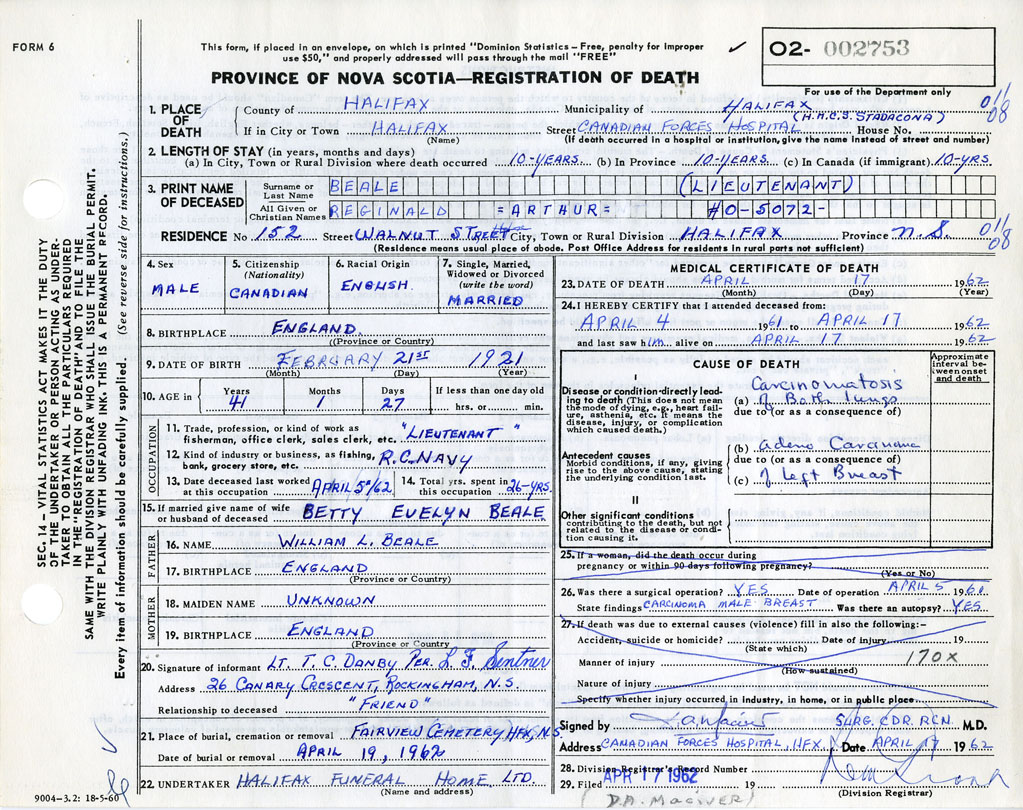 FORM 6
This form, if placed in an envelope, on which is printed "Dominion Statistics – Free, penalty for improper
use $50," and properly addressed will pass through the mail "FREE"
✓
O2- 002753
PROVINCE OF NOVA SCOTIA—REGISTRATION OF DEATH
For use of the Department only
1. PLACE OF DEATH
County of HALIFAX Municipality of HALIFAX 011/08
(H.M.C.S. STADACONA)
If in City or Town HALIFAX Street CANADIAN FORCES HOSPITAL House No.
(Name) (If death occurred in a hospital or institution, give the name instead of street and number)
2. LENGTH OF STAY (in years, months and days)
(a) In City, Town or Rural Division where death occurred 10-YEARS. (b) In Province 10-YEARS. (c) In Canada (if immigrant) 10-YRS.
3. PRINT NAME OF DECEASED
Surname or Last Name BEALE (LIEUTENANT)
All Given or Christian Names REGINALD =ARTHUR= #0-5072-
RESIDENCE No 152 Street WALNUT STREET City, Town or Rural Division HALIFAX Province N.S. 011/08
(Residence means usual place of abode. Post Office Address for residents in rural parts not sufficient)
4. Sex
MALE
5. Citizenship
(Nationality)
CANADIAN
6. Racial Origin
ENGLISH.
7. Single, Married,
Widowed or Divorced
(write the word)
MARRIED
8. BIRTHPLACE ENGLAND
(Province or Country)
9. DATE OF BIRTH FEBRUARY 21ST 1921
(Month) (Day) (Year)
10. AGE in Years Months Days If less than one day old
41 1 27 hrs. or min.
OCCUPATION
11. Trade, profession, or kind of work as
fisherman, office clerk, sales clerk, etc. "LIEUTENANT"
12. Kind of industry or business, as fishing,
bank, grocery store, etc. R.C. NAVY
13. Date deceased last worked
at this occupation APRIL 5º/62
14. Total yrs. spent in
this occupation 26-YRS.
15. If married give name of wife
or husband of deceased BETTY EVELYN BEALE
FATHER
16. NAME WILLIAM L. BEALE
17. BIRTHPLACE ENGLAND
(Province or Country)
MOTHER
18. MAIDEN NAME UNKNOWN
19. BIRTHPLACE ENGLAND
(Province or Country)
20. Signature of informant LT. T.C. DANBY PER. L F. Sentner
Address 26 CANARY CRESCENT, ROCKINGHAM, N.S.
Relationship to deceased "FRIEND"
21. Place of burial, cremation or removal FAIRVIEW CEMETERY HFX, N.S.
Date of burial or removal APRIL 19, 1962
22. UNDERTAKER HALIFAX FUNERAL HOME LTD.
(Name and address)
MEDICAL CERTIFICATE OF DEATH
23. DATE OF DEATH APRIL 17 1962
(Month) (Day) (Year)
24. I HEREBY CERTIFY that I attended deceased from:
APRIL 4 1961 to APRIL 17 1962
and last saw him alive on APRIL 17 1962
CAUSE OF DEATH
Approximate
interval be-
tween onset
and death
I
Disease or condition directly lead-
ing to death (This does not mean
the mode of dying, e.g., heart fail-
ure, asthenia, etc. It means the
disease, injury, or complication
which caused death.)
Carcinomatosis
(a) of Both lungs
due to (or as a consequence of)
Antecedent causes
Morbid conditions, if any, giving
rise to the above cause, stating
the underlying condition last.
(b) adeno Carcinoma
due to (or as a consequence of)
(c) of left Breast
II
Other significant conditions
contributing to the death, but not
related to the disease or condi-
tion causing it.
25. If a woman, did the death occur during
pregnancy or within 90 days following pregnancy?
(Yes or No)
26. Was there a surgical operation? YES Date of operation APRIL 5 1961
State findings CARCINOMA MALE BREAST Was there an autopsy? YES
27. If death was due to external causes (violence) fill in also the following:–
Accident, suicide or homicide? Date of injury 19
(State which)
Manner of injury 170X
(How sustained)
Nature of injury
Specify whether injury occurred in industry, in home, or in public place
Signed by SURG. CDR. RCN. M.D.
Address CANADIAN FORCES HOSPITAL, HFX. Date APRIL 17 1962
28. Division Registrar's Record Number
29. Filed APR 17 1962 19
(D.A. MACIVER) (Division Registrar)
SEC. 14 – VITAL STATISTICS ACT MAKES IT THE DUTY
OF THE UNDERTAKER OR PERSON ACTING AS UNDER-
TAKER TO OBTAIN ALL THE PARTICULARS REQUIRED
IN THE "REGISTRATION OF DEATH" AND TO FILE THE
SAME WITH THE DIVISION REGISTRAR WHO SHALL ISSUE THE BURIAL PERMIT.
WRITE PLAINLY WITH UNFADING INK. THIS IS A PERMANENT RECORD.
Every item of information should be carefully supplied. (See reverse side for instructions.)
9004-3.2: 18-5-60